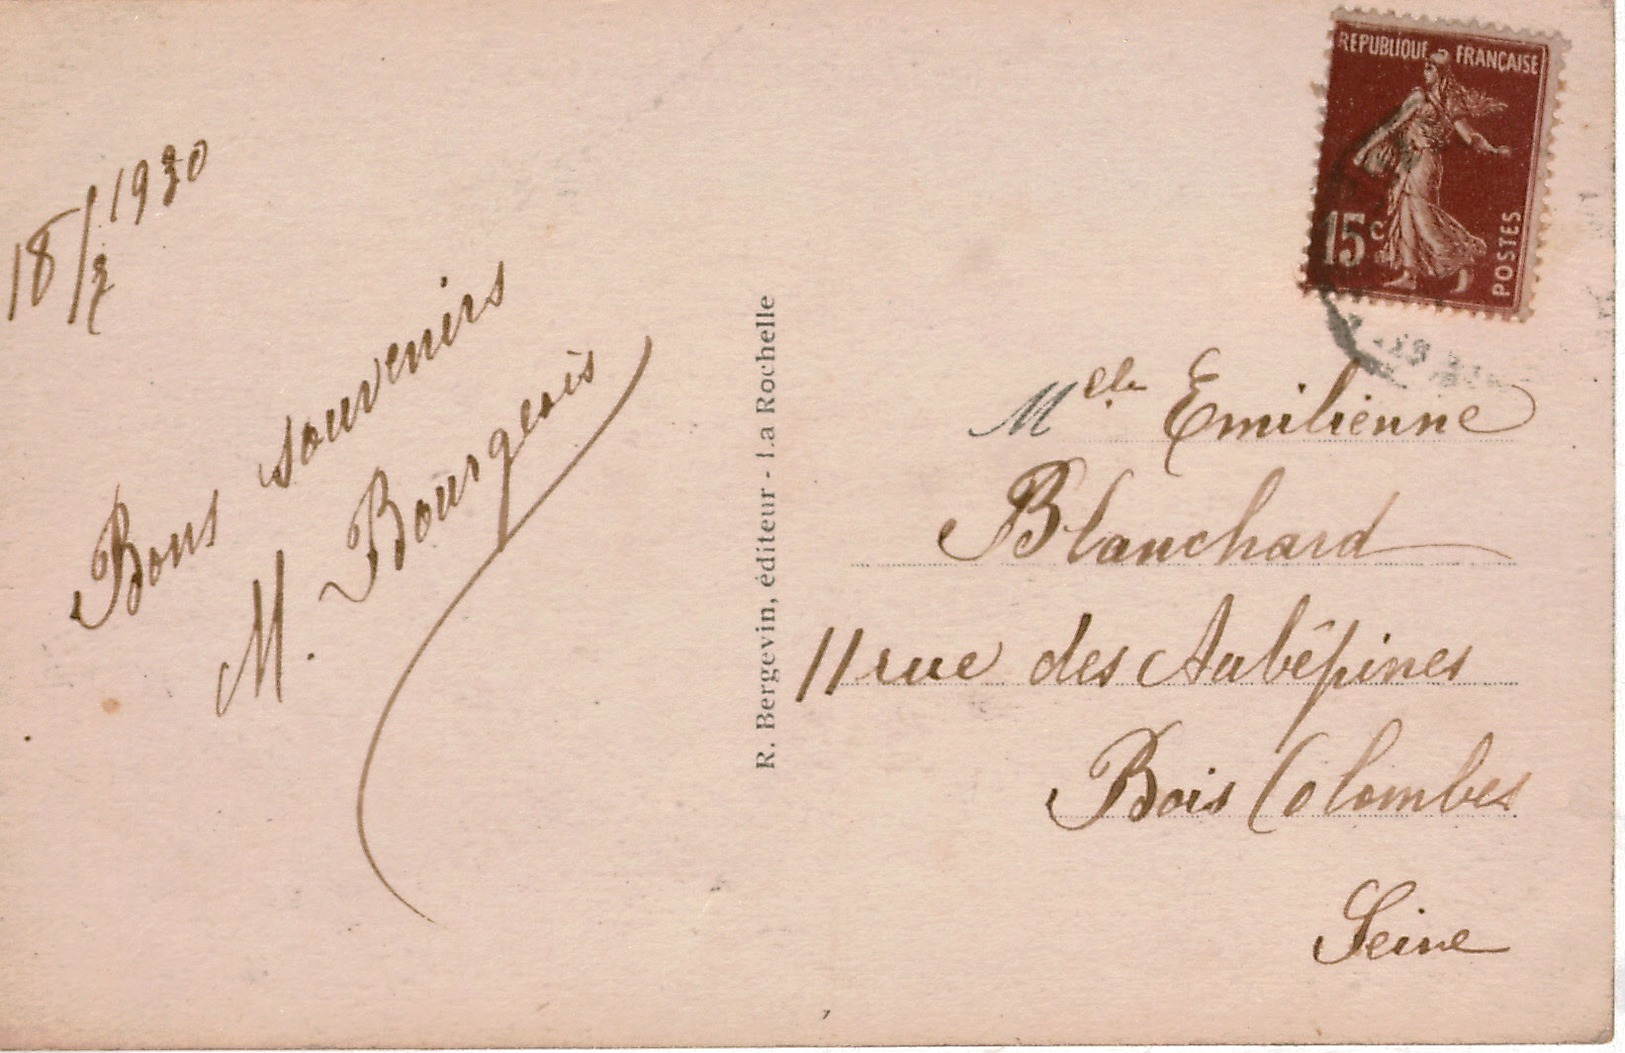 18/7 1930
Bons souvenirs
M. Bourgeois
R. Bergevin, éditeur - La Rochelle
REPUBLIQUE FRANÇAISE
15c
POSTES
Melle Emilienne
Blanchard
11 rue des Aubêpines
Bois Colombes
Seine